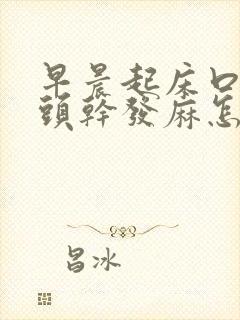 早晨起床口
頭幹發麻怎
昌冰